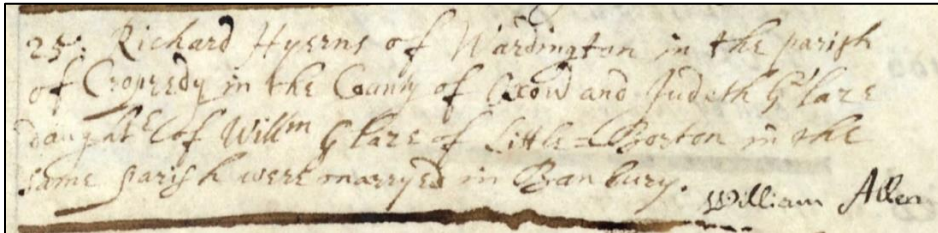 25: Richard Hyerns of Wardington in the parish
of Cropredy in the County of Oxon and Judeth Glaze
daughter of Willm Glaze of Little=Borton in the
same parish were marryed in Banbury.
William Allen